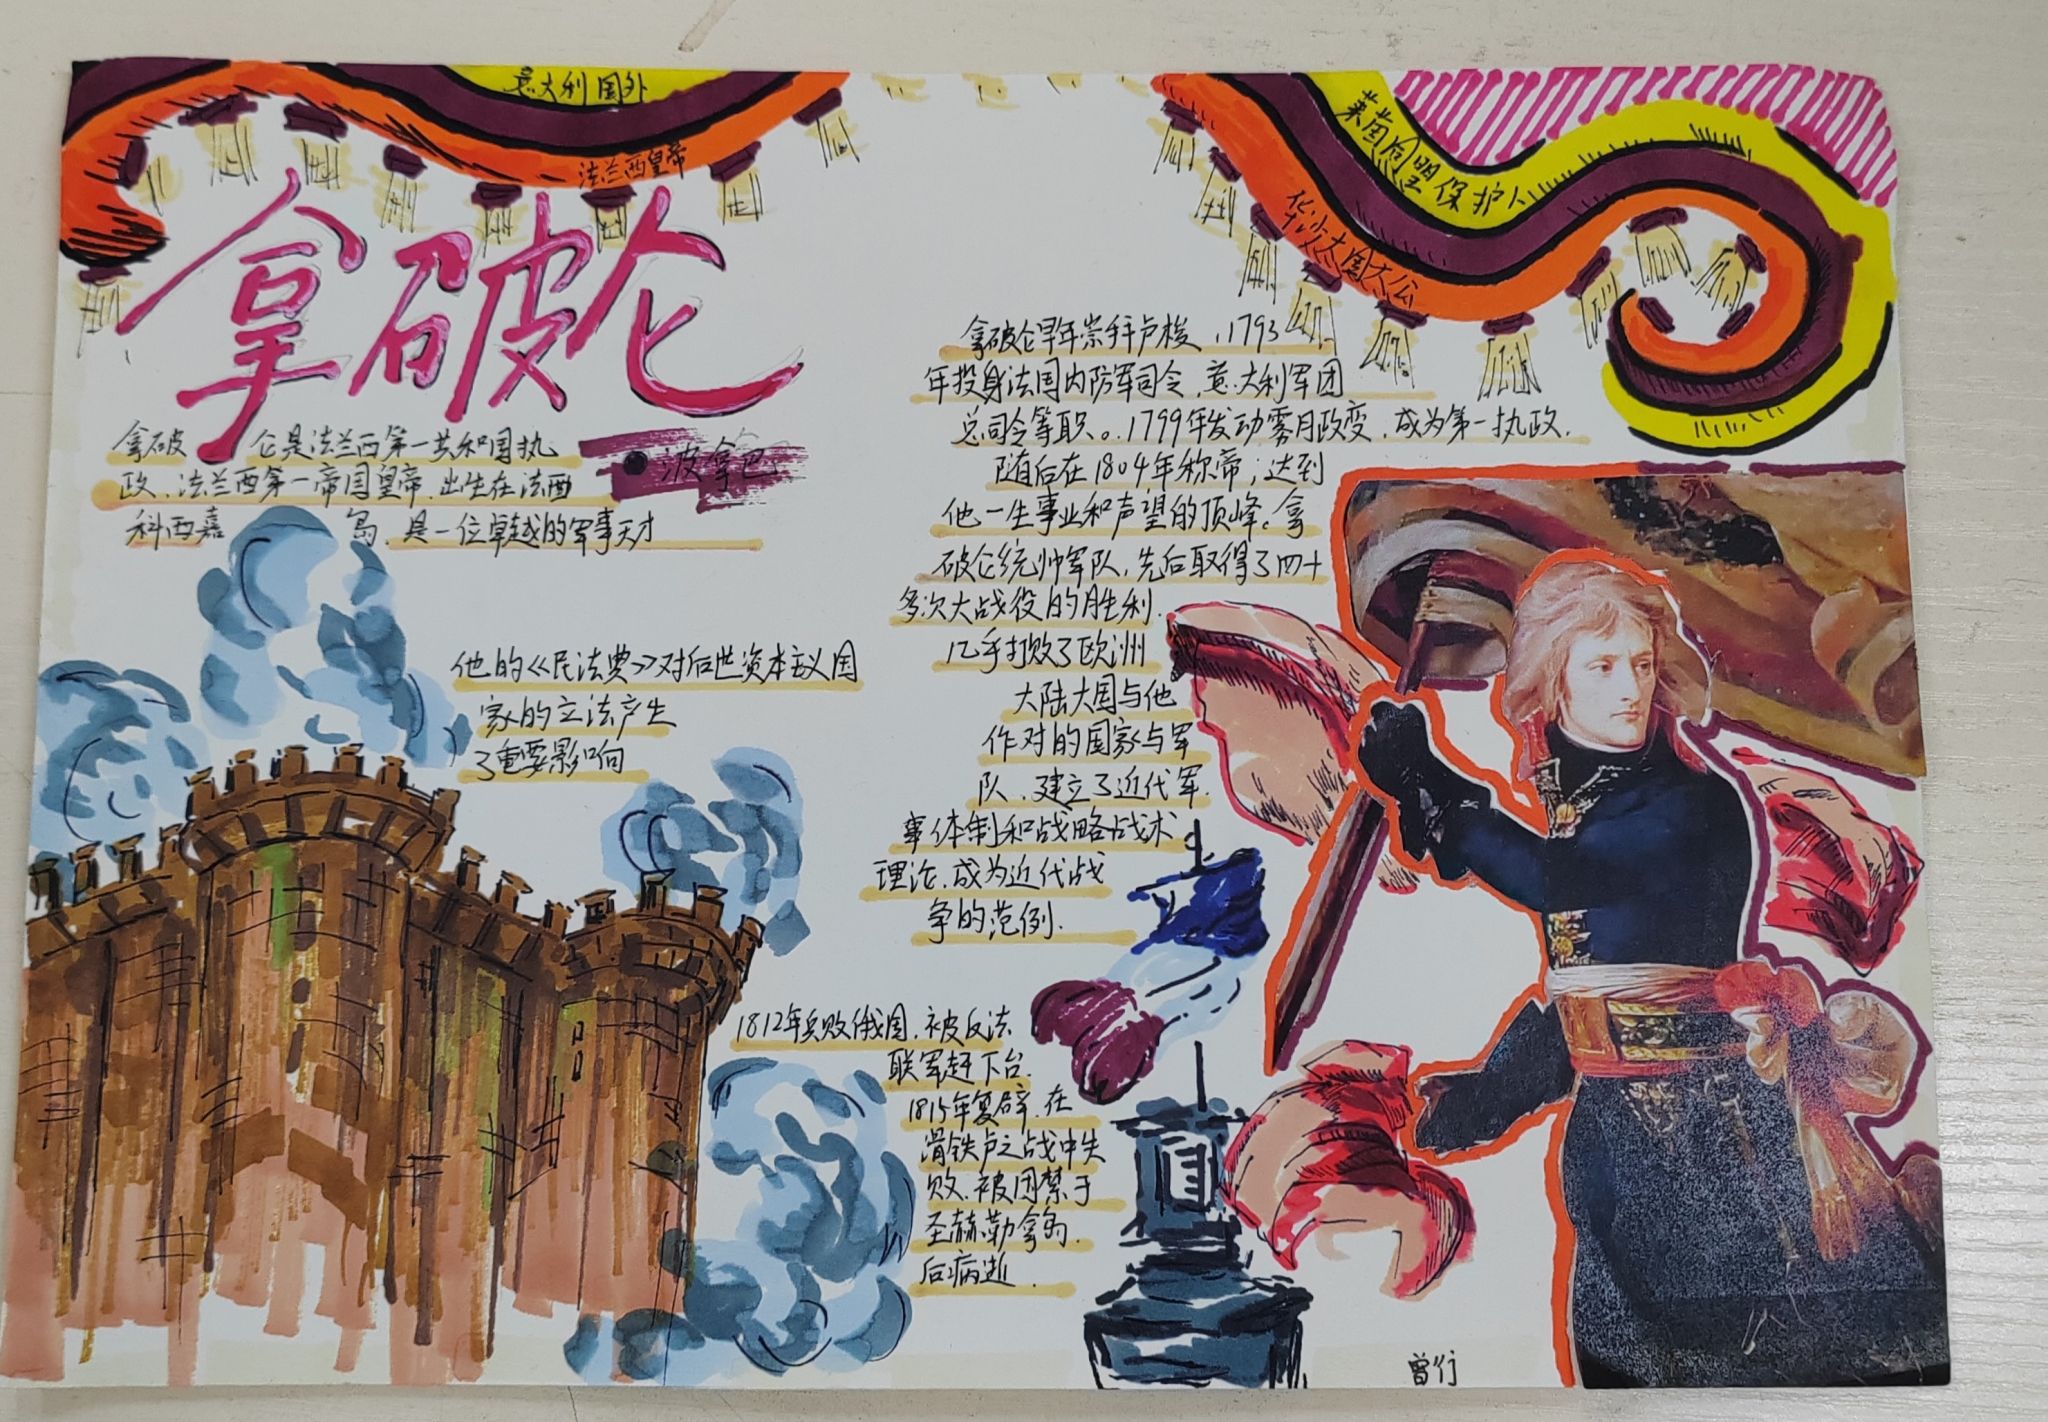 意大利国外
法兰西皇帝
莱茵同盟保护人
华沙大国大公
拿破仑
·波拿巴
拿破 仑是法兰西第一共和国执
政、法兰西第一帝国皇帝,出生在法西
科西嘉 岛,是一位卓越的军事天才
他的《民法典》对后世资本主义国
家的立法产生
了重要影响
拿破仑早年崇拜卢梭,1793
年投身法国内防军司令,意大利军团
总司令等职。.1799年发动雾月政变,成为第一执政.
随后在1804年称帝;达到
他一生事业和声望的顶峰。拿
破仑统帅军队,先后取得了四十
多次大战役的胜利.
几乎打败了欧洲
大陆大国与他
作对的国家与军
队,建立了近代军
事体制和战略战术
理论,成为近代战
争的范例.
1812年兵败俄国,被反法
联军赶下台.
1815年复辟,在
滑铁卢之战中失
败,被囚禁于
圣赫勒拿岛.
后病逝.
曾行